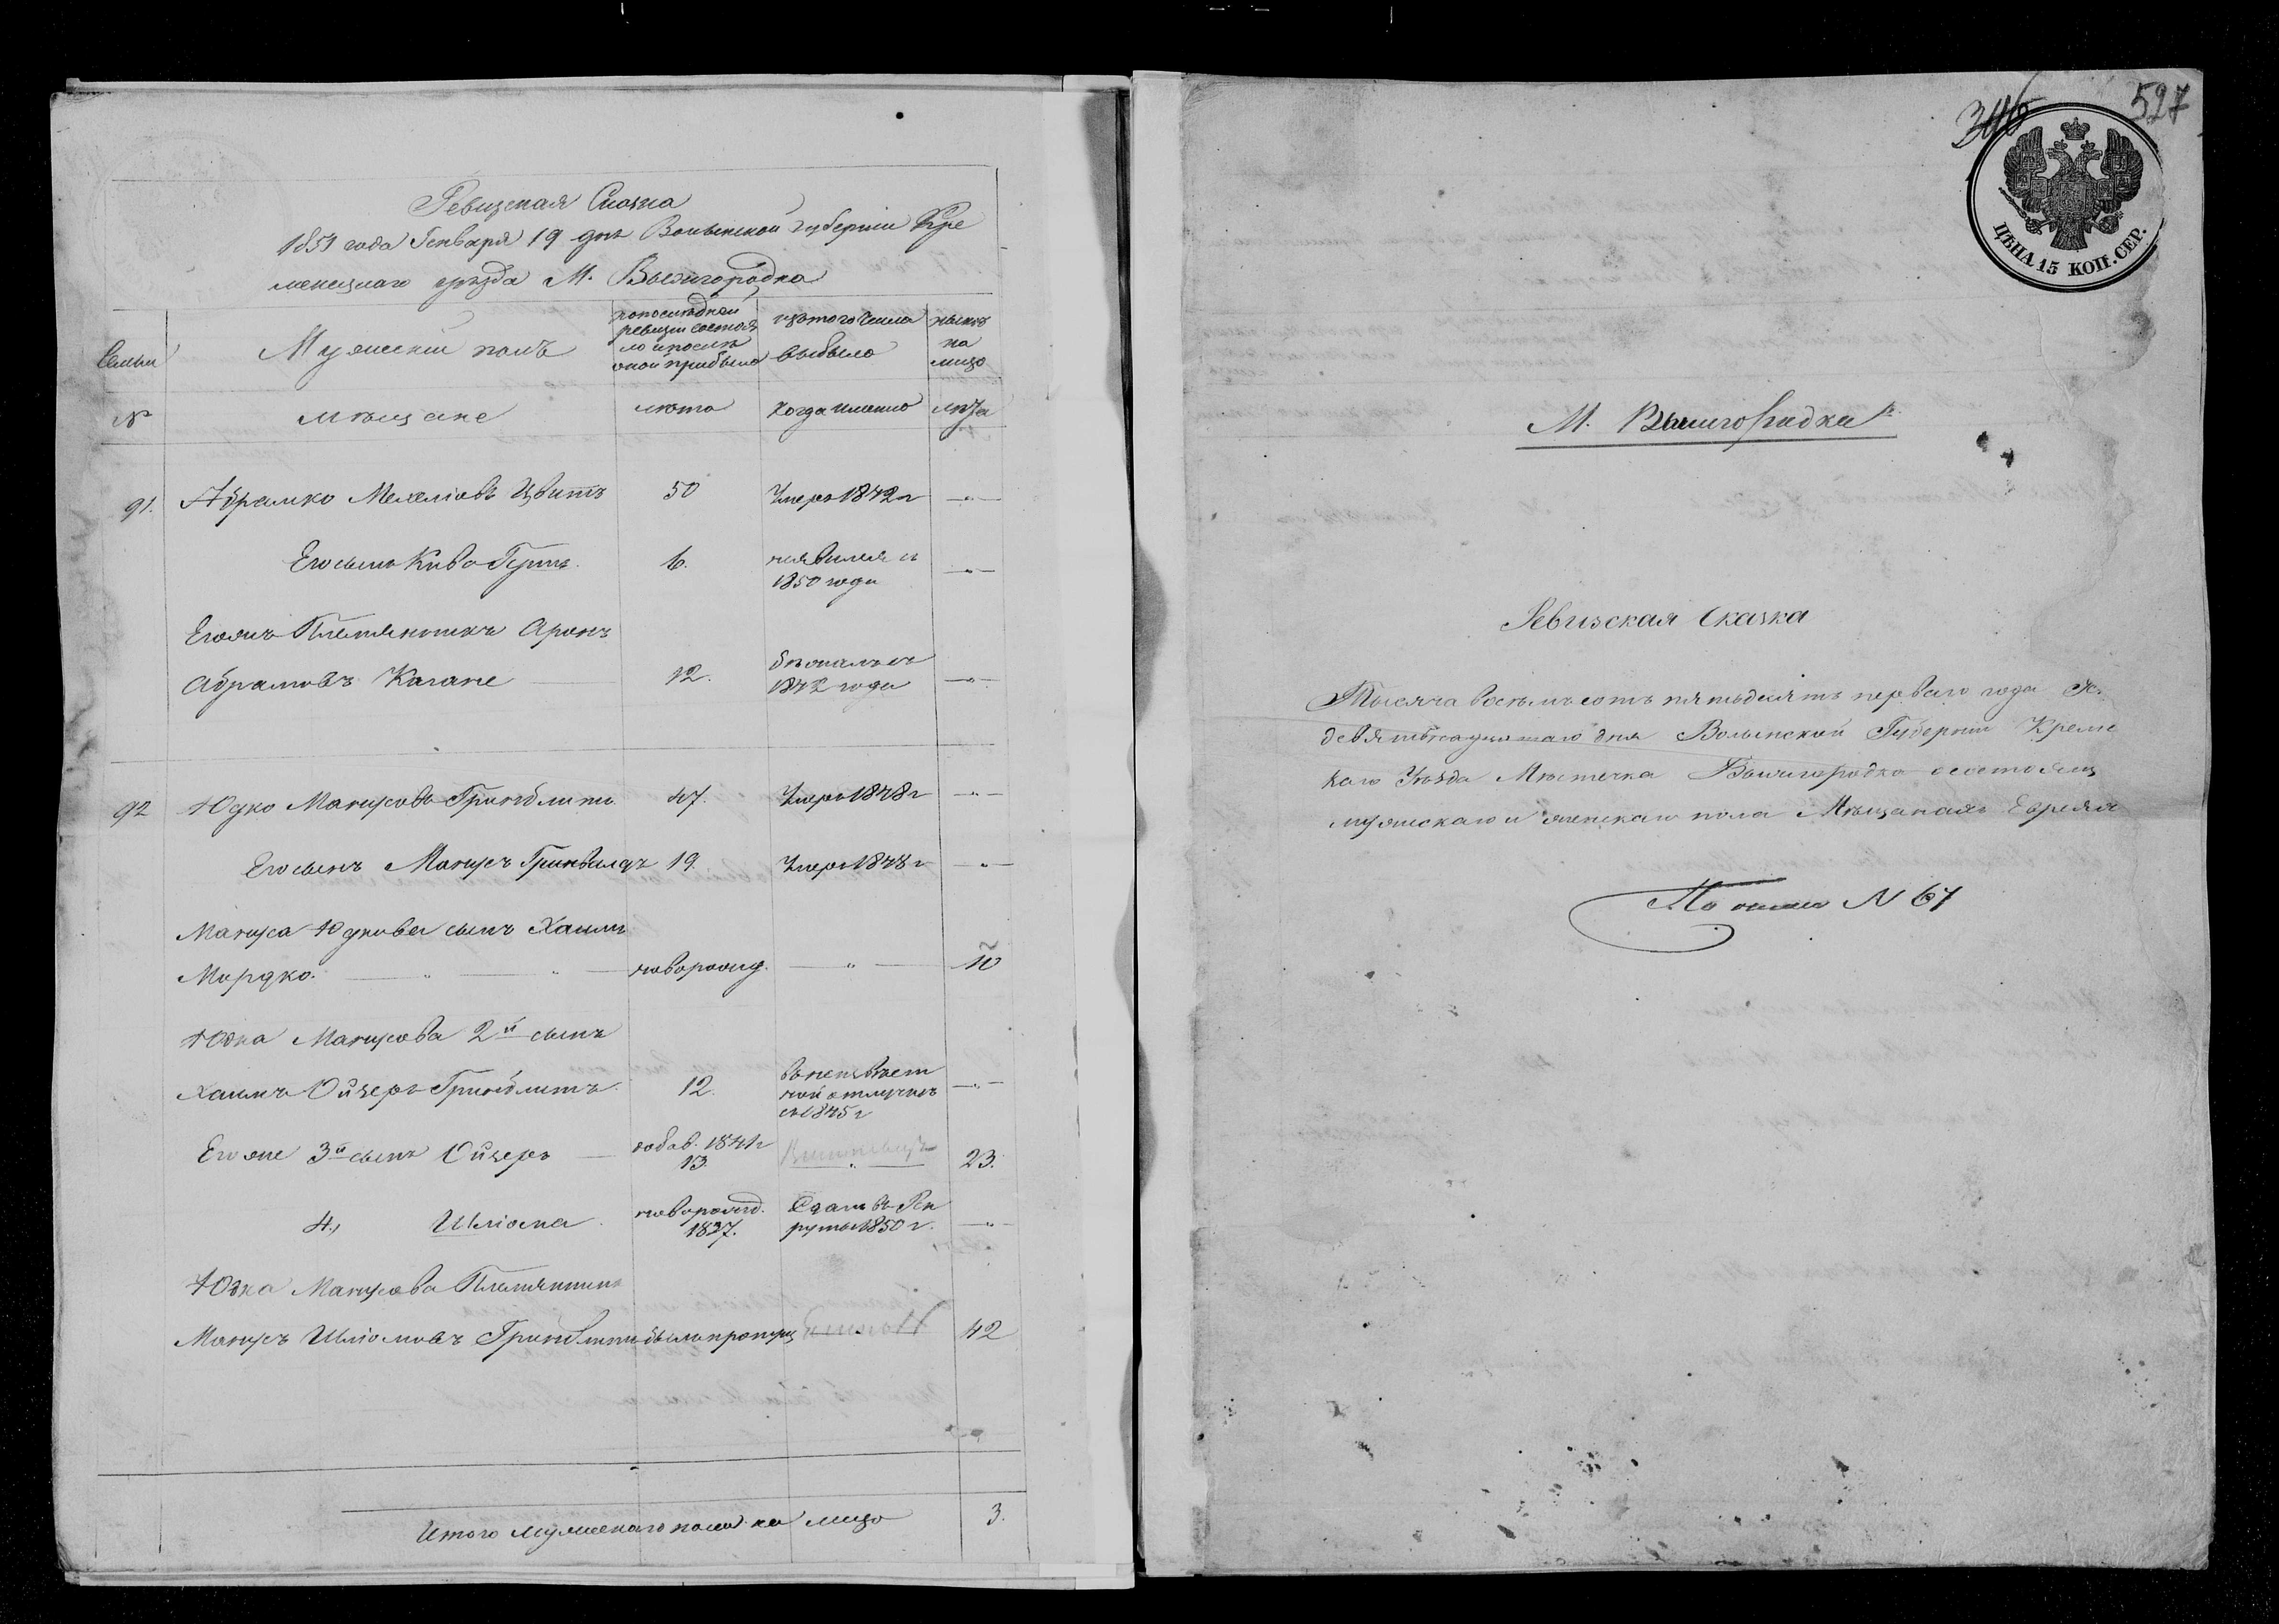 Ревизская Сказка
1851 года Генваря 19 дня Волынской губернии Кре
менецкаго уезда М. Вышгородка
Семьи
Мужеский полъ
по последней
ревизии состоя
ло и после
оной прибыло
изъ того числа
выбыло
ныне
на
лицо
№
мещане
лета
когда именно
лета
91. Абрамко Мехелiовъ Цвитъ 50 Умеръ 1842 г —"—
Его сынъ Кива 6. неявился съ
1850 года —"—
Его же Племянникъ Аронъ
Абрамовъ Кагане 12. бежалъ съ
1842 года —"—
92 Юдко Манусовъ Гринблитъ 47. Умеръ 1848 г —"—
Его сынъ Манусъ 19. Умеръ 1848 г —"—
Мануса Юдкова сынъ Хаимъ
Мордко. новорожд. —"— 10
Юдка Манусова 2й сынъ
Хаимъ Ойзеръ Гринблитъ 12. въ неизвест
ной отлучке
съ 1845 г —"—
Его же 3й сынъ Ойзеръ 1841 г
13. —"— 23.
4., Шлiома новорожд.
1837. Сданъ въ Рек
руты 1850 г. —"—
Юдка Манусова Племянникъ
Манусъ Шлiомовъ Гринблитъ былъ пропущ 42
Итого мужескаго пола на лицо 3.
527
ЦѢНА 15 КОП. СЕР.
М. Вышгородка
Ревизская Сказка
Тысяча восемьсотъ пятьдесятъ перваго года
девятнадцатаго дня Волынской Губернии Креме
каго Уезда Местечка Вышгородка о состоящ
мужескаго и женскаго пола Мещанахъ Евреях
N 67